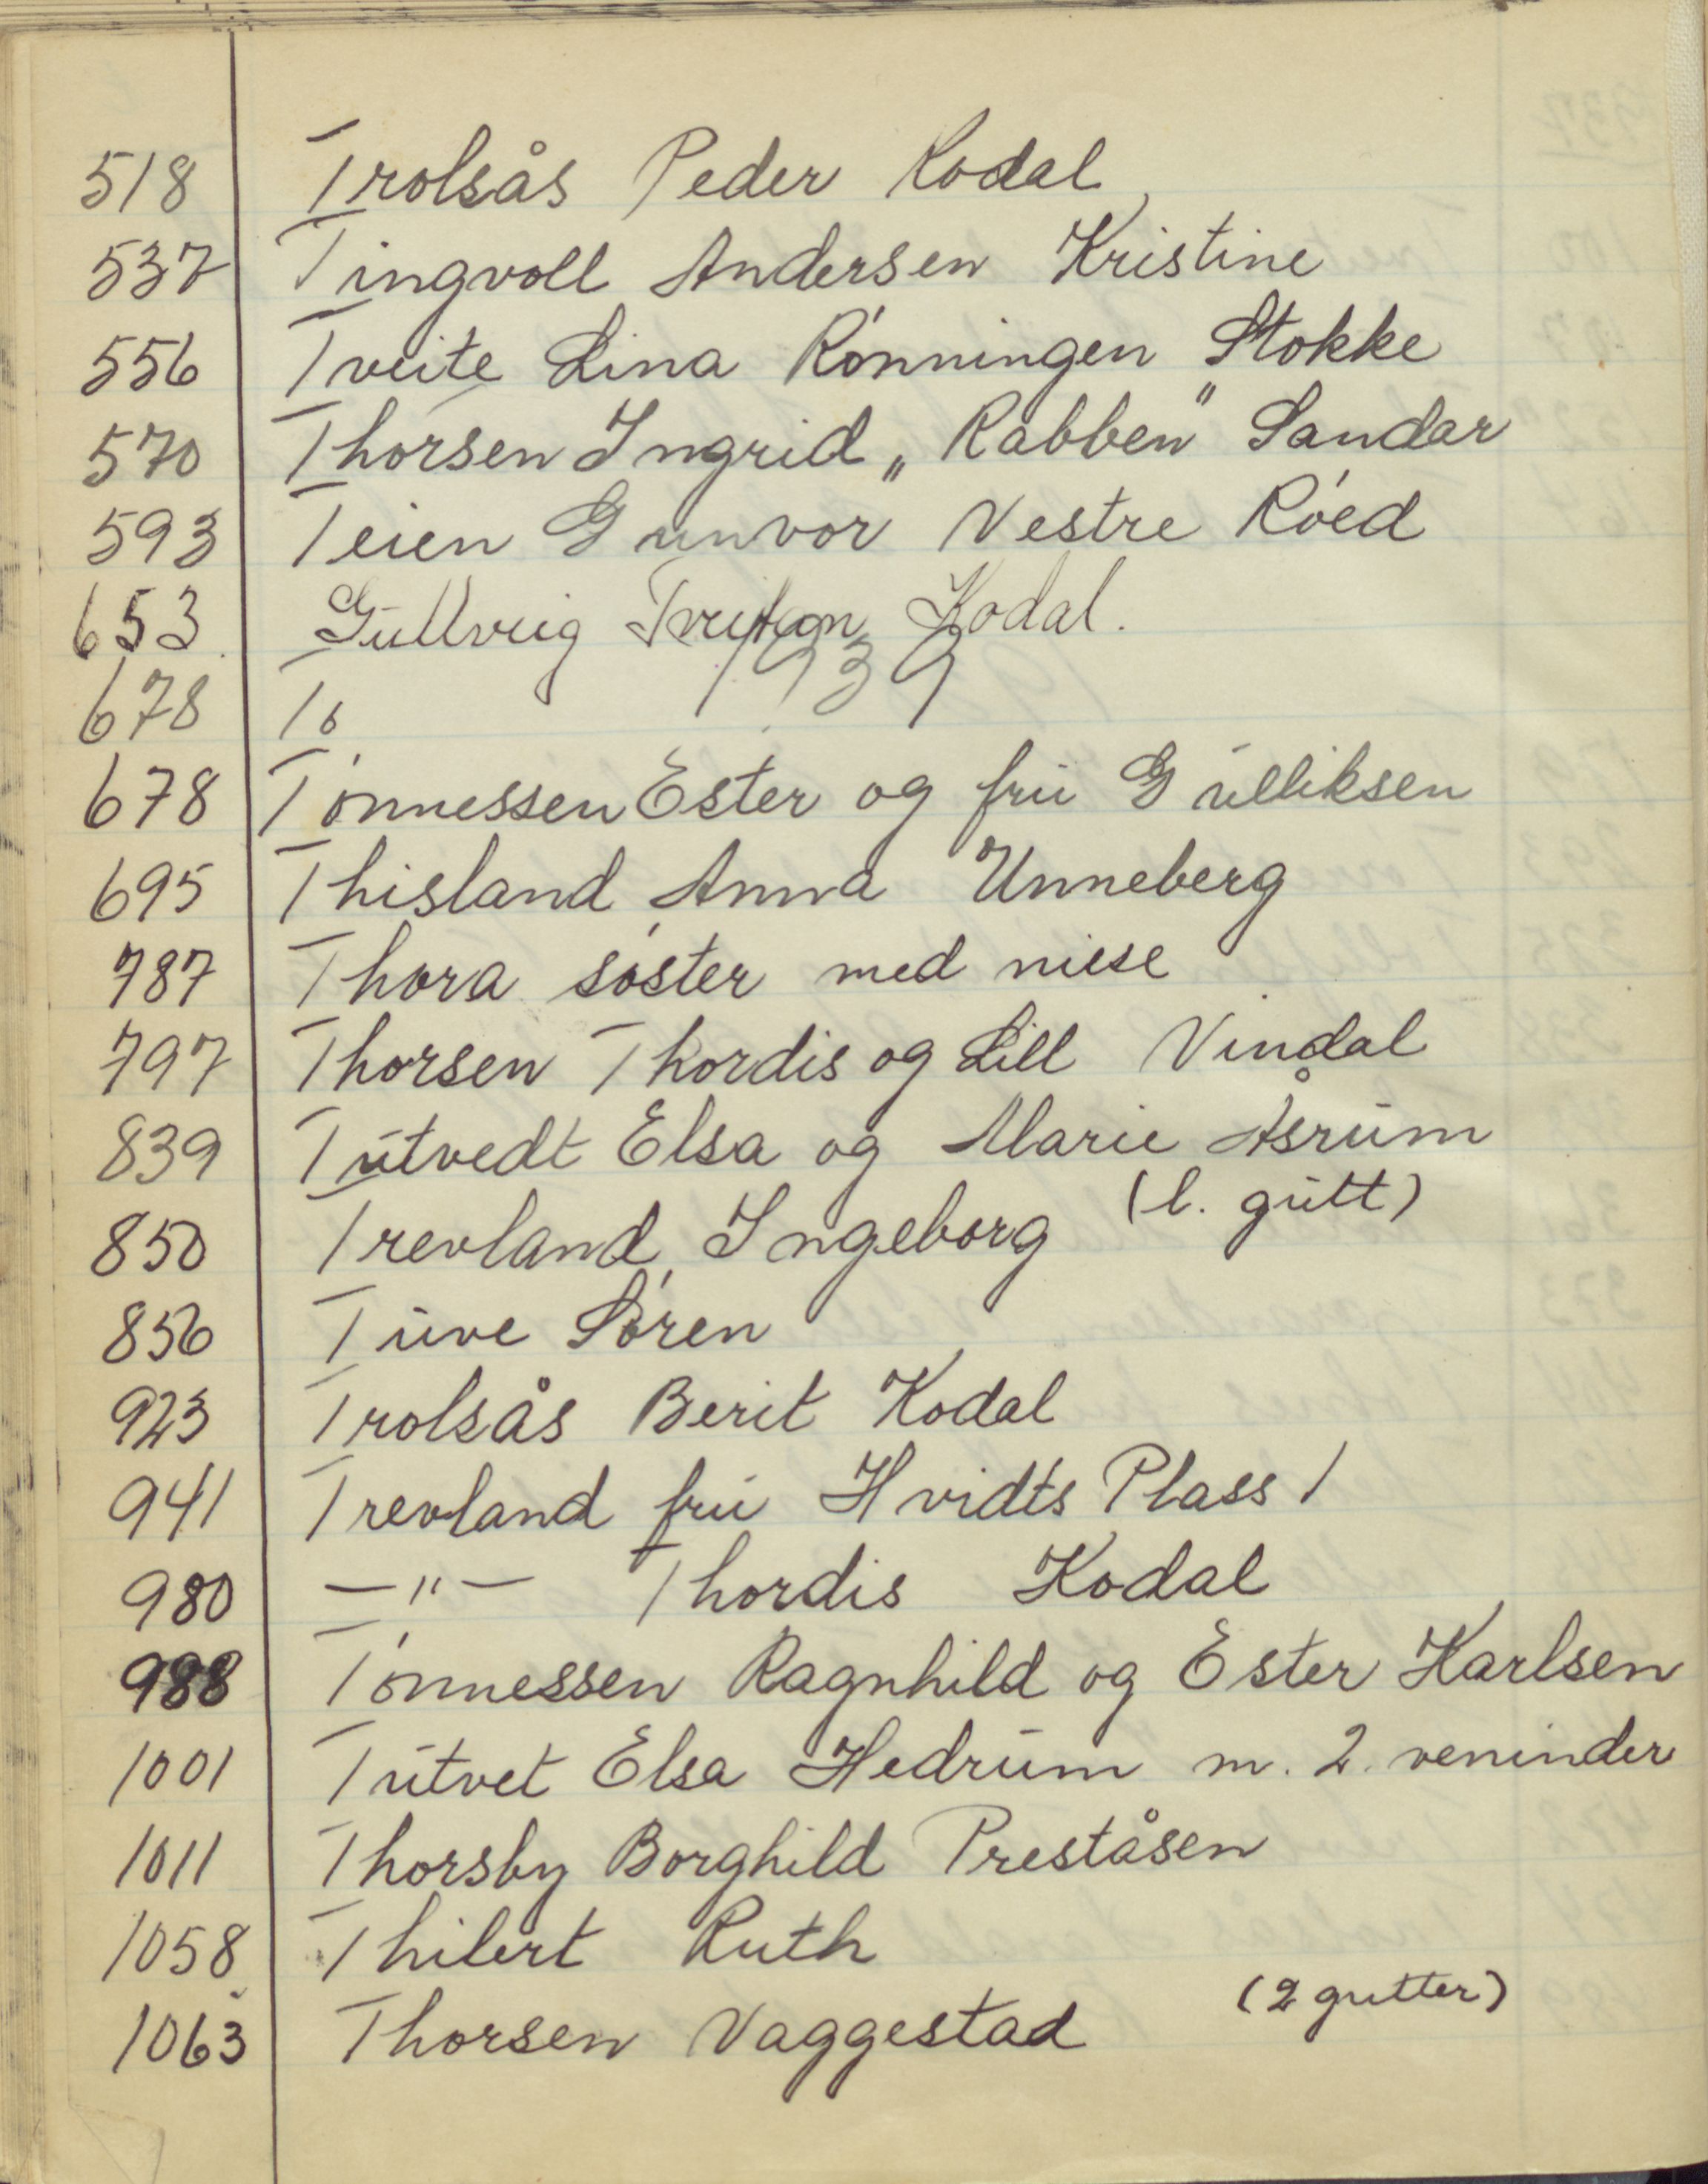 518 Trolsås Peder Kodal
537 Tingvoll Andersen Kristine
556 Tveite Lina Rønningen Stokke
570 Thorsen Ingrid „Rabben" Sandar
593 Teien Gunvor Vestre Røed
653 Gullveig Tveitan Kodal.
1939
678 Tø
678 Tønnessen Ester og fru Gulliksen
695 Thisland Anna Unneberg
787 Thora søster med niese
797 Thorsen Thordis og Lill Vindal
839 Tutvedt Elsa og Marie Åsrum
850 Trevland Ingeborg (l. gutt)
856 Tuve Søren
923 Trolsås Berit Kodal
941 Trevland fru Hvidts Plass 1
980 —"— Thordis Kodal
988 Tønnessen Ragnhild og Ester Karlsen
1001 Tutvet Elsa Hedrum m. 2. veninder
1011 Thorsby Borghild Preståsen
1058 Thilert Ruth
1063 Thorsen Vaggestad (2 gutter)